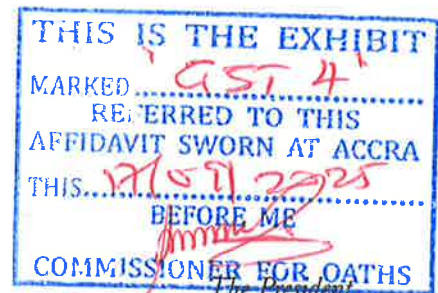 THIS IS THE EXHIBIT
MARKED "GST 4"
REFERRED TO THIS
AFFIDAVIT SWORN AT ACCRA
THIS 2025
BEFORE ME
COMMISSIONER FOR OATHS
The President